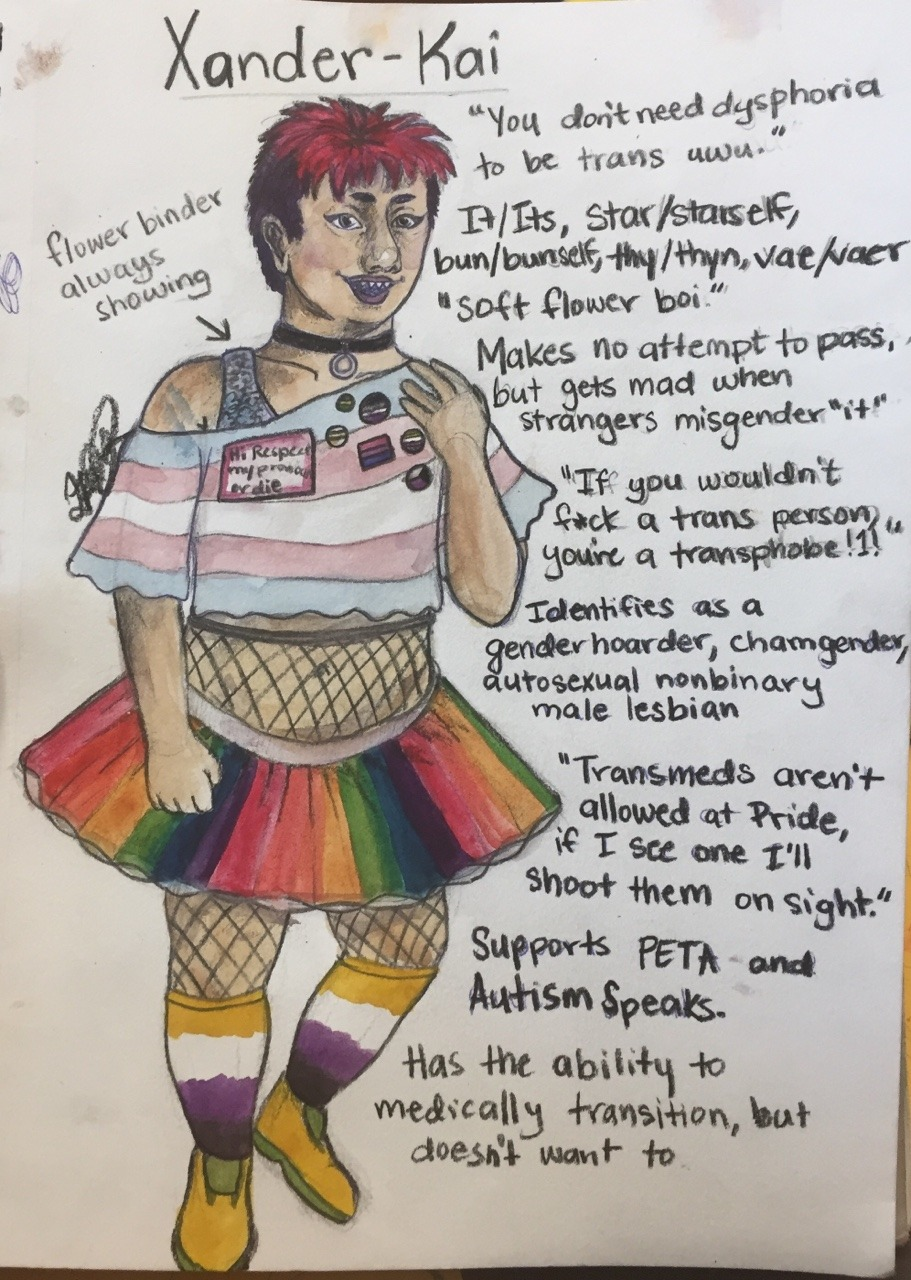 Xander-Kai
"You don't need dysphoria
to be trans uwu."
flower binder
always
showing
It/Its, Star/starself,
bun/bunself, thy/thyn, vae/vaer
"soft flower boi."
Makes no attempt to pass,
but gets mad when
strangers misgender "it"
Hi Respect
my
or die
"If you wouldn't
f*ck a trans person,
you're a transphobe!1!"
Identifies as a
genderhoarder, chamgender,
autosexual nonbinary
male lesbian
"Transmeds aren't
allowed at Pride,
if I see one I'll
shoot them on sight."
Supports PETA and
Autism Speaks.
Has the ability to
medically transition, but
doesn't want to